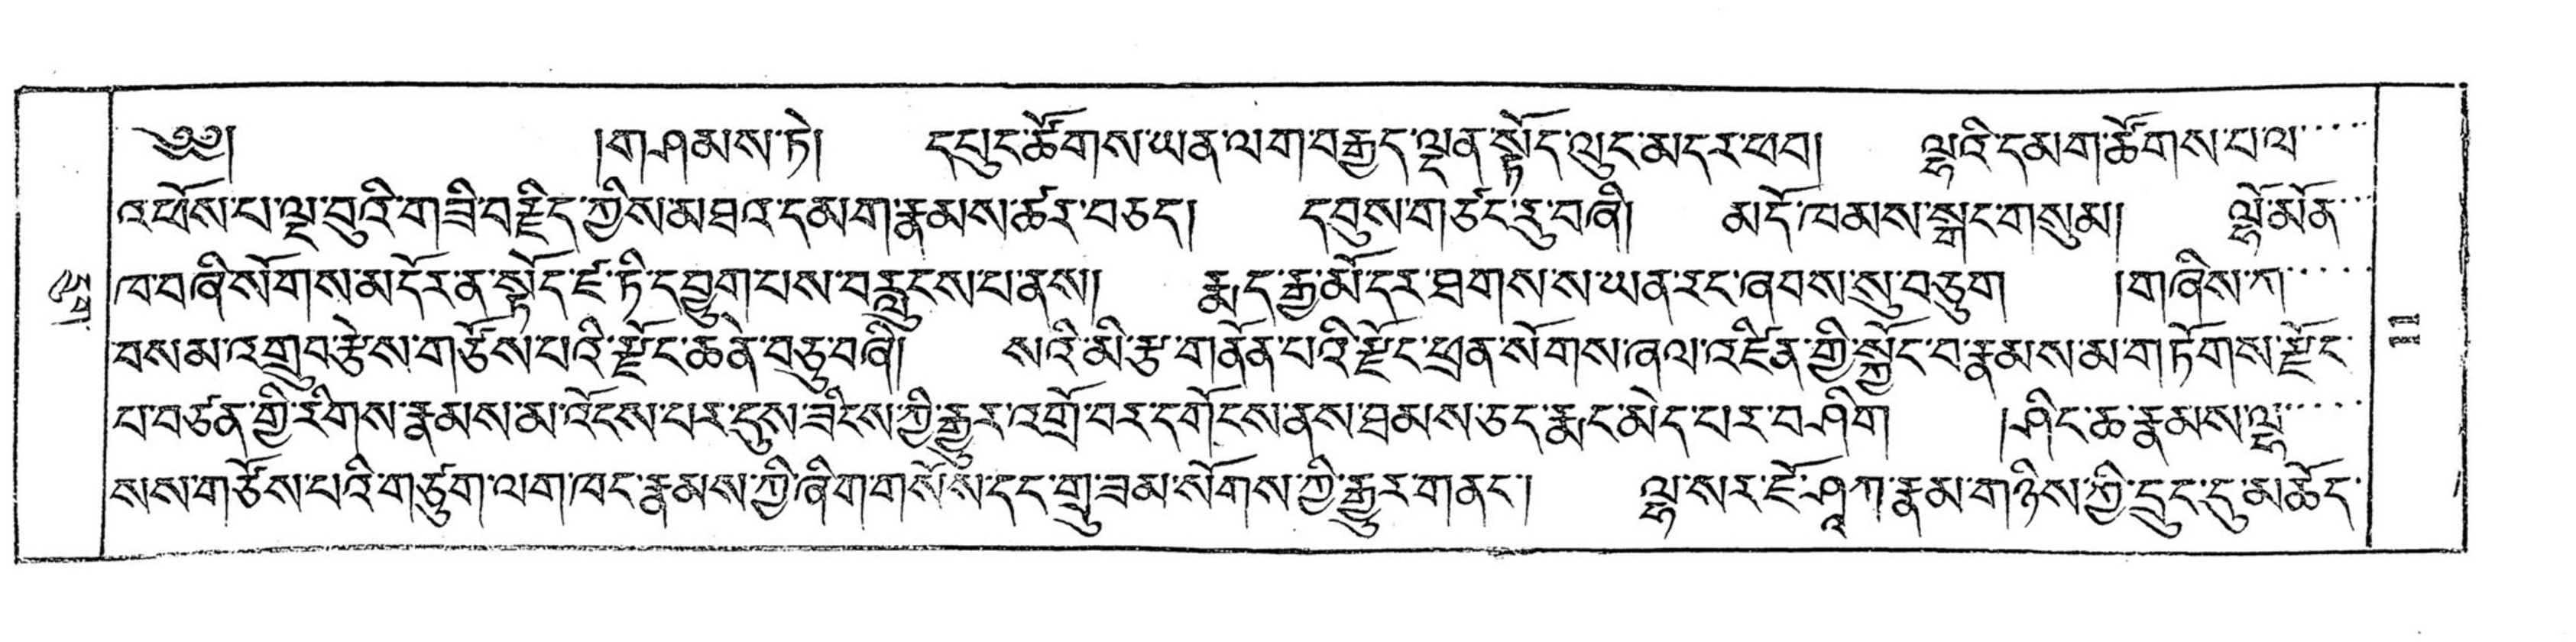 ༄༅། །གཤམས་ཏེ། དཔུང་ཚོགས་ཡན་ལག་བརྒྱད་ལྡན་སྟོད་ལུང་མདར་ཕབ། ལྷའི་དམག་ཚོགས་པ་ལ་....
འཕོས་པ་ལྟ་བུའི་གཟི་བརྗིད་ཀྱིས་མཐའ་དམག་རྣམས་ཚར་བཅད། དབུས་གཙང་རུ་བཞི། མདོ་ཁམས་སྒང་གསུམ། ལྷོ་མོན་...
ཁ་བཞི་སོགས་མདོར་ན་སྟོད་ཛ་ཏི་དབྱུག་པས་བརླུངས་པ་ནས། རྨད་རྒྱ་མོ་དར་ཐགས་ས་ཡན་རང་ཞབས་སུ་བཅུག །གཞིས་ཀ་.....
བསམ་འགྲུབ་རྩེས་གཙོས་པའི་རྫོང་ཆེན་བཅུ་བཞི། སའི་མི་རྩ་གནོན་པའི་རྫོང་ཕྲན་སོགས་ཞལ་འཛིན་གྱི་སྐྱོང་བ་རྣམས་མ་གཏོགས་རྫོང་
པ་བཙན་གྱི་རིགས་རྣམས་མ་འོངས་པར་དུས་ཟིངས་ཀྱི་རྒྱུར་འགྲོ་བར་དགོངས་ནས་ཐམས་ཅད་རྨང་མེད་པར་བཤིག །ཤིང་ཆ་རྣམས་ལྷ་....
སས་གཙོས་པའི་གཙུག་ལག་ཁང་རྣམས་ཀྱི་ཞིག་གསོས་དང་གྲུ་ཟམ་སོགས་ཀྱི་རྒྱུར་གནང་། ལྷ་སར་ཇོ་ཤཱཀ་རྣམ་གཉིས་ཀྱི་དྲུང་དུ་མཆོད་